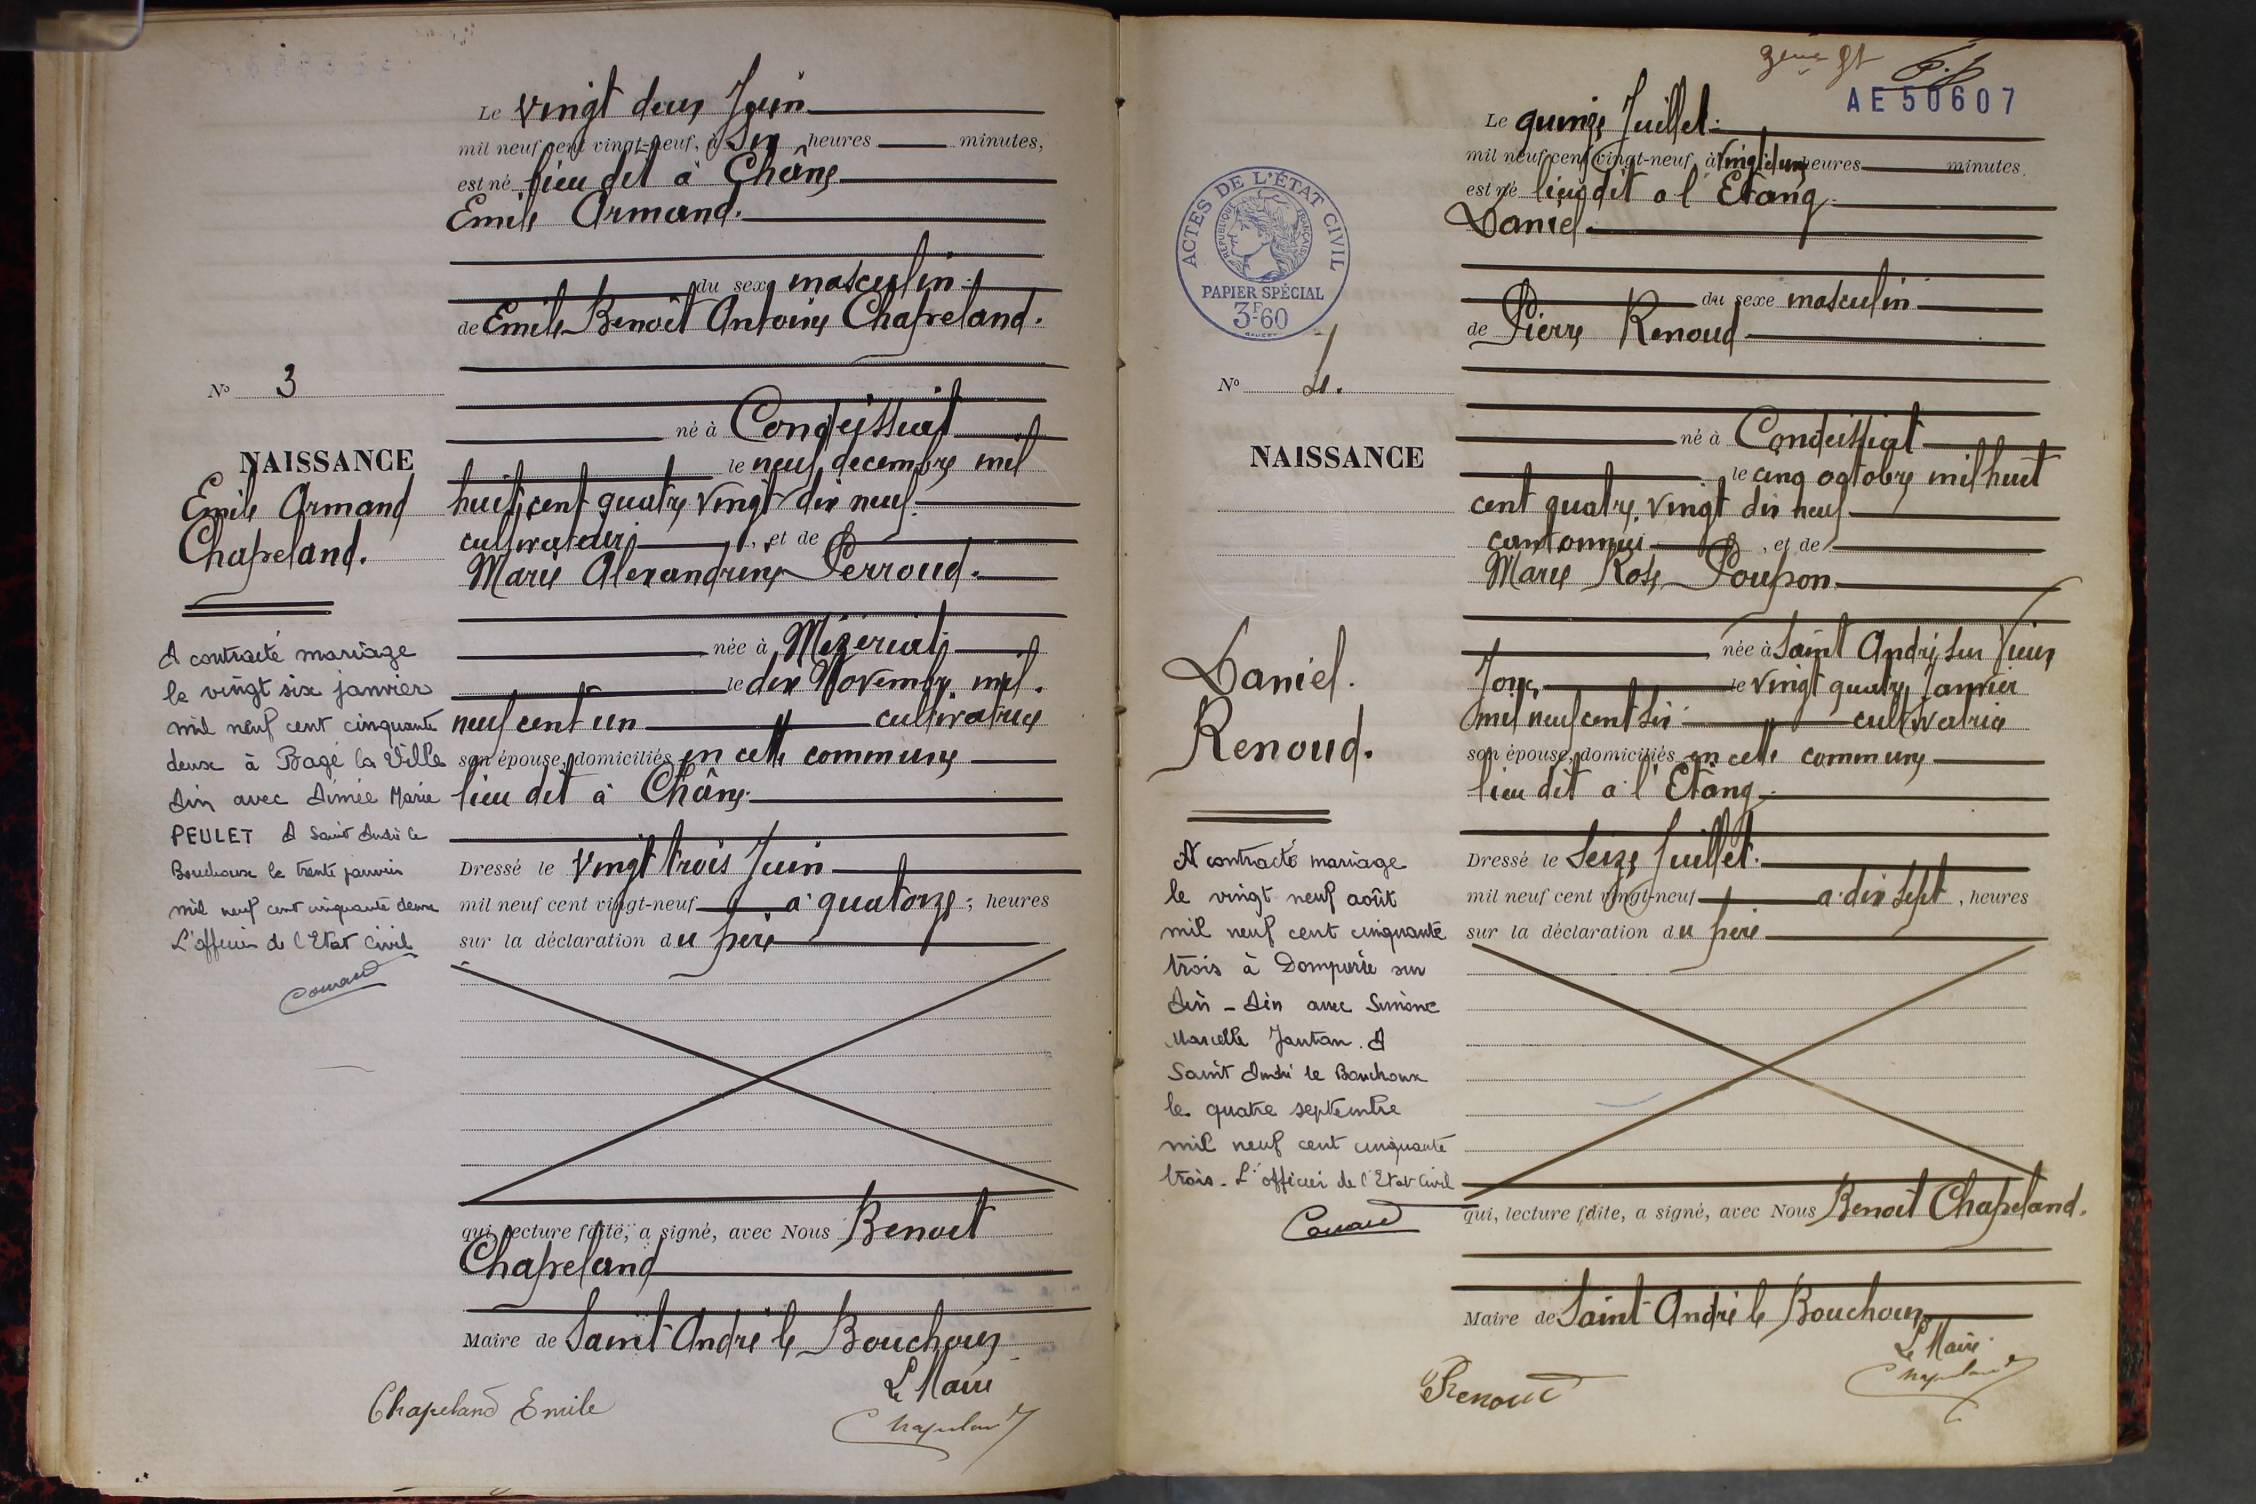 Le vingt deux Juin
mil neuf cent vingt-neuf, à six heures minutes,
est né lieu dit à Châne
Emile Armand.
du sexe masculin
de Emile Benoît Antoine Chapeland.
N° 3
né à Condeissiat
NAISSANCE
le neuf décembre mil
Emile Armand
huit cent quatre vingt dix neuf
Chapeland.
cultivateur, et de
Marie Alexandrine Perroud.
née à Mézériat
le dix Novembre mil
neuf cent un cultivatrice
son épouse, domiciliés en cette commune
lieu dit à Châne
A contracté mariage
le vingt six janvier
mil neuf cent cinquante
deux à Bagé la Ville
Ain avec Aimée Marie
PEULET A Saint André le
Bouchoux le trente janvier
mil neuf cent cinquante deux
L'officier de l'Etat Civil
Dressé le vingt trois Juin
mil neuf cent vingt-neuf à quatorze heures
sur la déclaration du père
qui, lecture faite, a signé, avec Nous Benoit
Chapeland
Maire de Saint André le Bouchoux
Le Maire
Chapeland Emile
Chapeland
3eme
AE50607
Le quinze Juillet
mil neuf cent vingt-neuf à vingt et une heures minutes
est né lieu dit a l'Etang
Daniel
ACTES DE L'ÉTAT CIVIL
RÉPUBLIQUE FRANÇAISE
PAPIER SPÉCIAL
3F60
du sexe masculin
de Pierre Renoud
N° 4.
né à Condeissiat
NAISSANCE
le cinq octobre mil huit
cent quatre vingt dix neuf
cantonnier, et de
Marie Rose Poupon
née à Saint André sur Vieux
Jonc le vingt quatre Janvier
mil neuf cent six cultivatrice
son épouse, domiciliés en cette commune
lieu dit a l'Etang
Daniel.
Renoud.
A contracté mariage
le vingt neuf août
mil neuf cent cinquante
trois à Dompierre sur
Ain - Ain avec Simone
Marcelle Jantan. A
Saint André le Bouchoux
le quatre septembre
mil neuf cent cinquante
trois - L'officier de l'Etat Civil
Dressé le Seize Juillet
mil neuf cent vingt-neuf a dix sept, heures
sur la déclaration du père
qui, lecture faite, a signé, avec Nous Benoit Chapeland.
Maire de Saint André le Bouchoux
Le Maire
Renoud
Chapeland